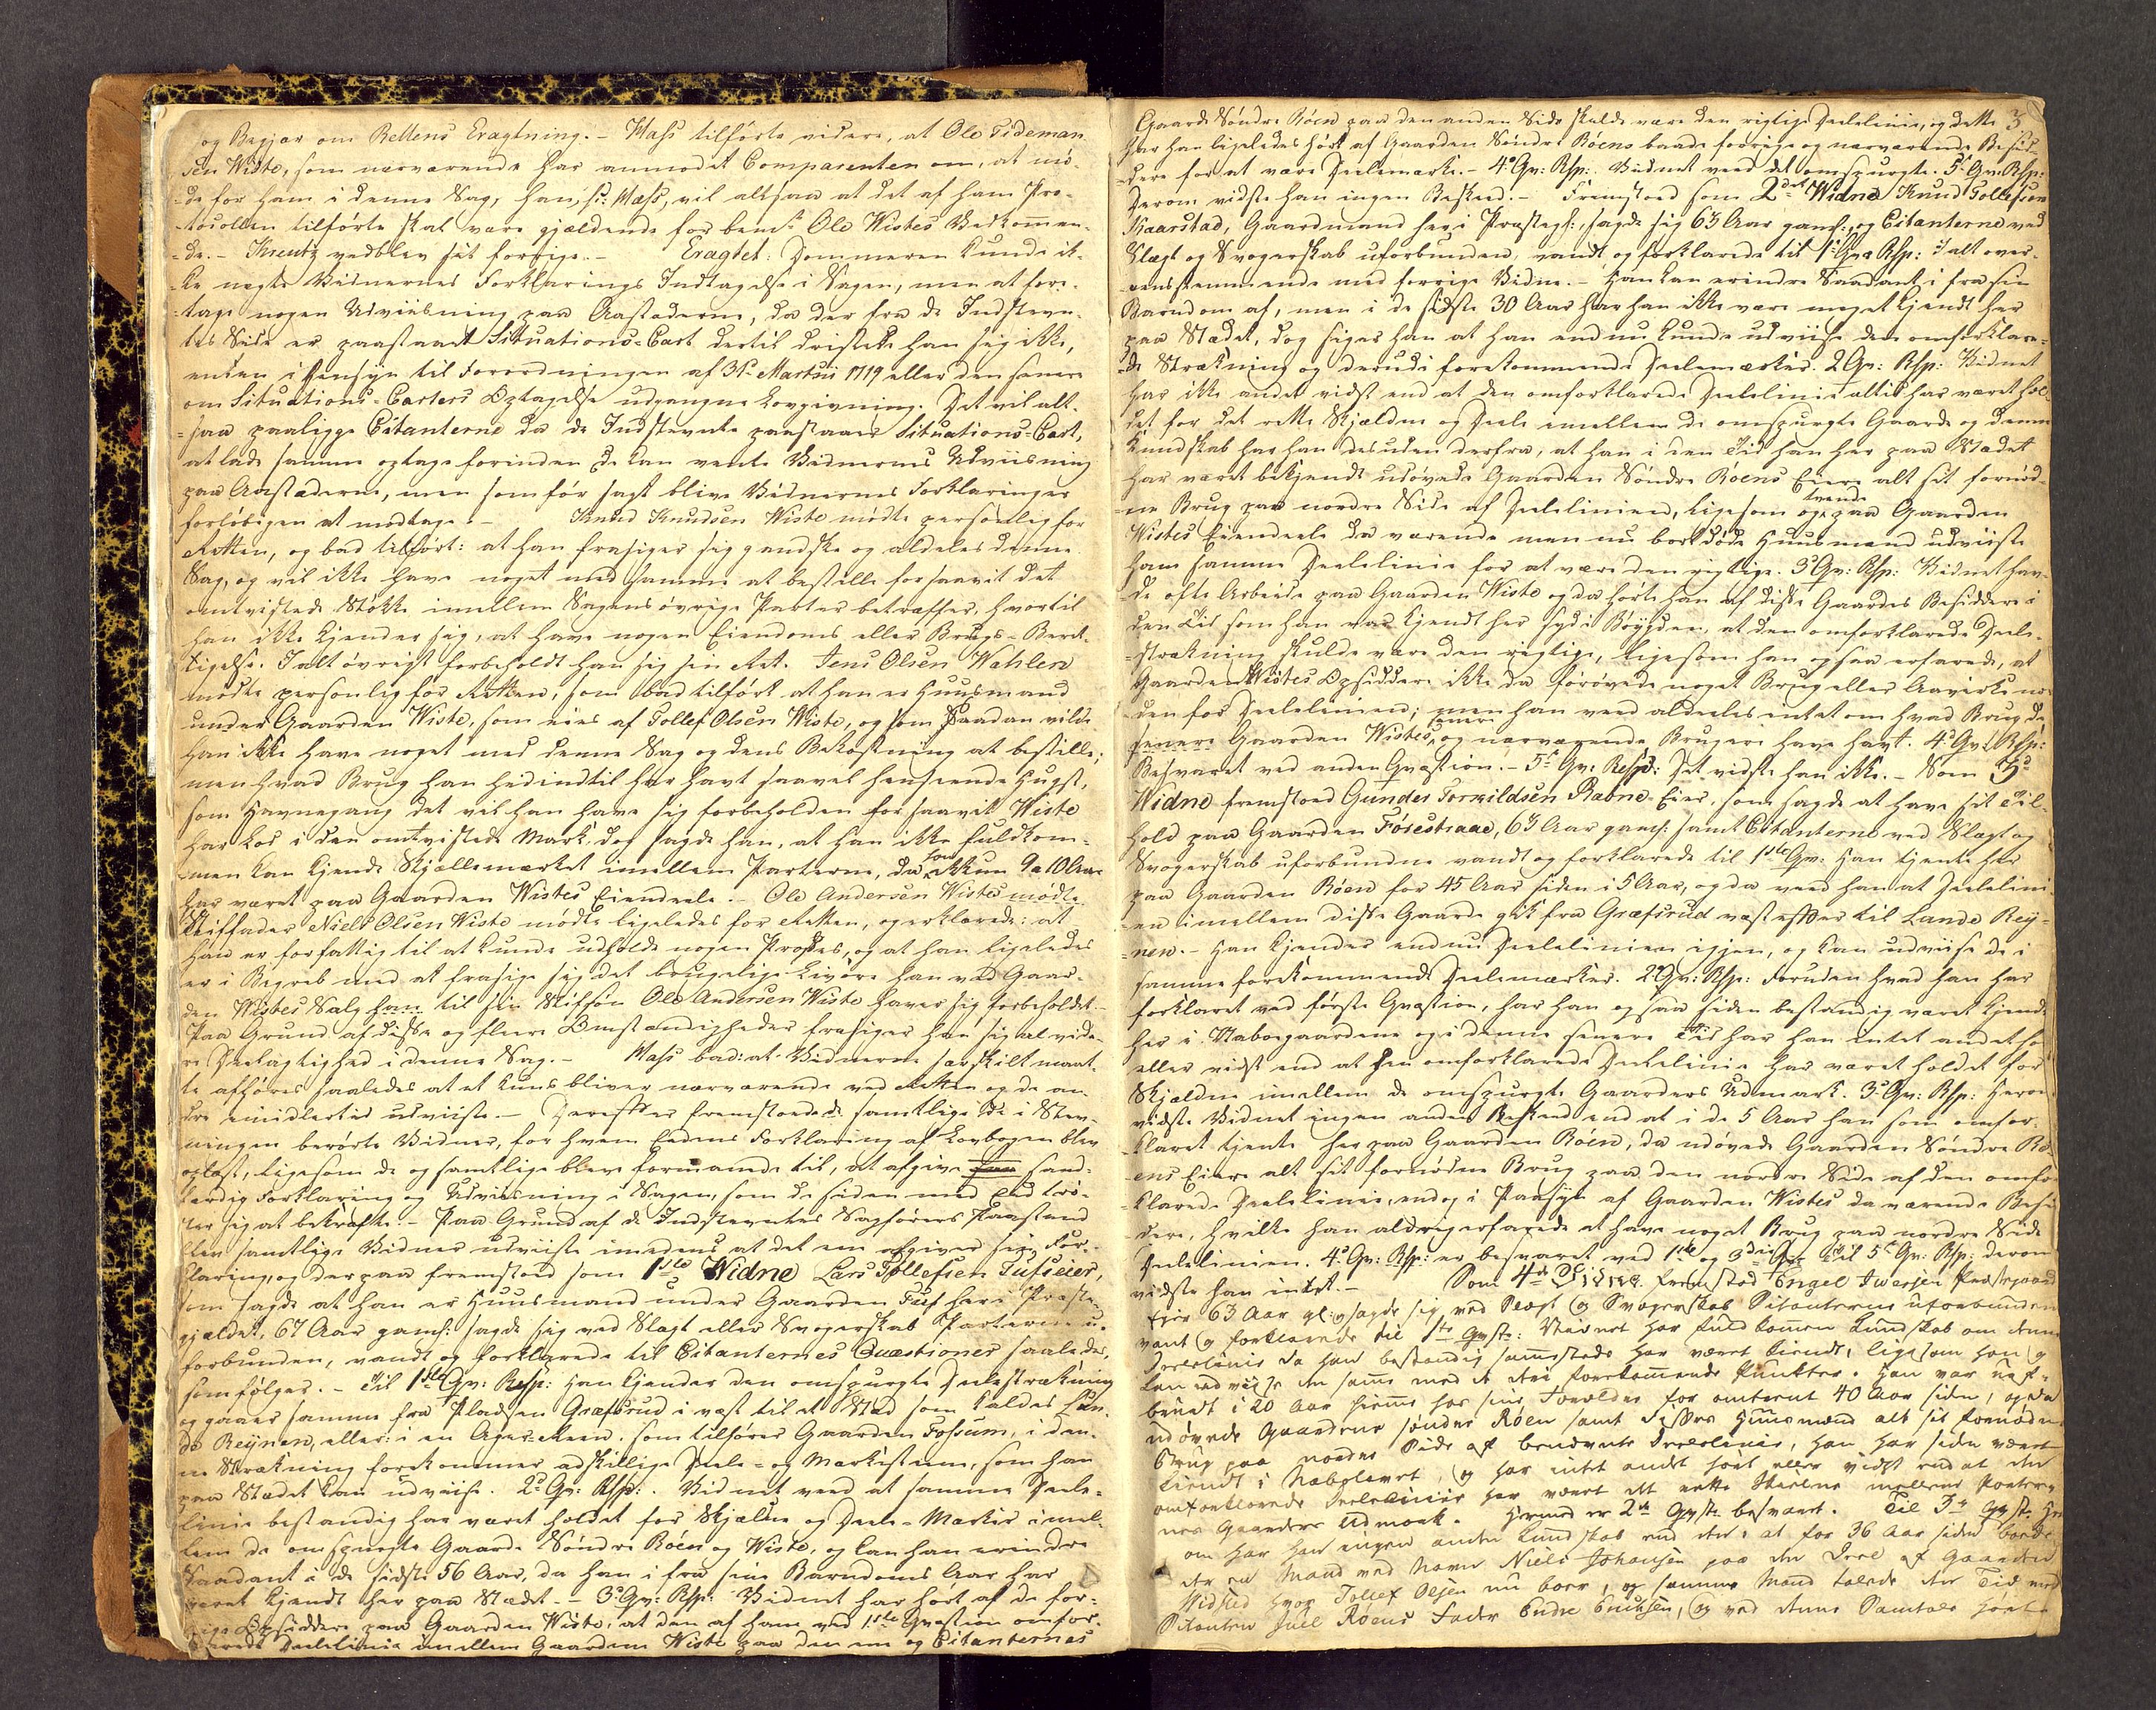 og Begjær om Rettens Eragtning. - Mass tilførte videre, at Ole Tideman
sen Wiste, som nærværende har anmodet Comparenten om, at mø-
de for ham i denne Sag, han, sr: Mass, vil altsaa at det af ham Pro-
tocollen tilførte skal være gjældende for bemte Ole Wistes Vedkommen-
de. - Kreutz vedblev sit forrige. - Eragtet: Dommeren kunde ik-
ke negte Vidnernes Forklarings Indtagelse i Sagen, men at fore-
tage nogen Udviisning paa Aastæderne, da der fra de Indstevn-
tes Side er paastaaet Situations-Cart dertil dristede han sig ikke,
enten i Hensyn til Forordningen af 31te Martsii 1719 eller den senere
om Situations-Carters Optagelse udgangne Lovgivning. Det vil alt-
saa paaligge Citanterne da de Indstevnte paastaaer Situations-Cart,
at lade samme optage forinden de kan vente Vidnernes Udviisning
paa Aastæderne, men som før sagt blive Vidnernes Forklaringer
forløbigen at modtage. - Knud Knudsen Wiste mødte personlig for
Retten, og bad tilført: at han frasiger sig gandske og aldeles denne
Sag, og vil ikke have noget med samme at bestille forsaavit det
omtvistede Støkke imellem Sagens øvrige Parter betræffer, hvortil
han ikke kjender sig, at have nogen Eiendoms eller Brugs-Beret-
tigelse. I alt øvrigt forbeholdt han sig sin Ret. Jens Olsen Wahlen
mødte personlig for Retten, som bad tilført at han er Huusmand
under Gaarden Wiste, som eies af Tollef Olsen Wiste, og som saadan vilde
han ikke have noget med denne Sag og dens Bekostning at bestille;
men hvad Brug han hidindtil har havt saavel henseende Hugst,
som Havnegang det vil han have sig forbeholden forsaavit Wiste
har Lod i den omtvistede Mark, dog sagde han, at han ikke fuldkom-
men kan kjende Skjellemærket imellem Parterne, da han ikkun 9 a 10 Aar
har været paa Gaarden Wistes Eiendeele. - Ole Andersen Wistes mødte
Stiffader Niels Olsen Wiste mødte ligeledes for Retten, og erklærede: at
han er forfattig til at kunde udholde nogen Proses, og at han ligeledes
er i Begreb med at frasige sig det brugelige Livøre han ved Gaar-
den Wistes Salg han til sin Stifsøn Ole Andersen Wiste haver sig forbeholdet. -
Paa Grund af disse og flere Omstændigheder frasiger han sig al vide-
re Deelagtighed i denne Sag. - Mass bad: at Vidnerne særskilt maat-
te afhøres saaledes at et kuns bliver nærværende ved Retten og de an-
dre imidlertid udviiste. - Derefter fremstoede de samtlige de i Stev-
ningen berørte Vidner, for hvem Eedens Forklaring af Lovbogen blev
oplæst, ligesom de og samtlige bleve formanede til, at afgive sand-
færdig Forklaring og Udviisning i Sagen, som de siden med Eed trø-
ster sig at bekræfte. - Paa Grund af de Indstevntes Sagførers Paastand
blev samtlige Vidner udviiste imedens at det ene afgiver sin For-
klaring, og derpaa fremstod som 1ste Widne Lars Tollefsen Tufseier,
som sagde at han er Huusmand under Gaarden Tuf her i Præste-
gjældet, 67 Aar gaml: sagde sig ved Slægt eller Svogerskab Parterne u-
forbunden, vandt og forklarede til Citanternes Quæstioner saaledes,
som følger. - Til 1ste Qv: Resp: Han kjender den omspurgte Deelestrækning
og gaaer samme fra Pladsen Græfsrud i væst til et Stad som kaldes Lan-
de Reynen, eller: i en Ager-Reen, som tilhører Gaarden Fossum, i den-
ne Strækning forekommer adskillige Deele- og Markesteene, som han
paa Stædet kan udviise. 2de Qv: Rsp: Vidnet veed at samme Deele-
linie bestandig har været holdet for Skjælne og Deele-Mærker imel-
lem de omspurgte Gaarde Søndre Røen og Wiste, og kan han erindre
Saadant i de sidste 56 Aar, da han i fra sine Barndoms Aar har
været kjendt her paa Stædet. - 3de Qv: Rsp: Vidnet har hørt af de for-
rige Opsiddere paa Gaarden Wiste, at den af ham ved 1ste Qvæstion omfor-
klarede Deelelinie imellem Gaardene Wiste paa den ene og Citanternes
3
Gaarde Søndre Røen paa den anden Side skulde være den rigtige Deelelinie, og dette
har han ligeledes hørt af Gaarden Søndre Røens baade forrige og nærværende Besid-
dere for at være Deelemærke. - 4de Qv: Rsp: Vidnet veed det omspurgte. 5te Qv: Rsp:
Derom vidste han ingen Besked. - Fremstoed som 2det Widne Knud Tollefsen
Kaarstad, Gaardmand her i Præstegj:, sagde sig 63 Aar gaml:, og Citanterne ved
Slægt og Svogerskab uforbunden, vandt og forklarede til 1ste Qvæ Rsp: I alt over-
eensstemmende med forrige Vidne. - Han kan erindre Saadant i fra sin
Barndom af, men i de sidste 30 Aar har han ikke være meget kjendt her
paa Stædet, dog siger han at han endnu kunde udviise den omforklare-
de Strækning og derudi forekommende Deelemærker. 2 Qv: Rsp: Vidnet
har ikke andet vidst end at den omforklarede Deelelinie altid har været hol-
det for det rette Skjælden og Deele imellem de omspurgte Gaarde og denne
Kundskab har han desuden derfra, at han i den Tid han her paa Stædet
har været bekjendt udøvede Gaarden Søndre Røens Eiere alt sit fornød-
ne Brug paa nordre Side af Deelelinien, ligesom og tvende paa Gaarden
Wistes Eiendeele da værende men nu bortdøde Huusmænd udviiste
ham samme Deelelinie for at være den rigtige. 3de Qv: Rsp: Vidnet hav-
de ofte Arbeide paa Gaarden Wiste og da hørte han af disse Gaardes Besiddere i
den Tid som han var kjendt her Syd i Bøygden, at den omforklarede Deele-
strækning skulde være den rigtige, ligesom han ogsaa erfarede, at
Gaarden Wistes Opsiddere ikke da forøvede noget Brug eller Aavirke nor-
den for Deelelinien; men han veed aldeeles intet om hvad Brug de
senere Gaarden Wistes senere og nærværende Brugere have havt. 4de Qv: Rsp:
Besvaret ved anden Qvæstion. - 5te Qv: Resp: Det vidste han ikke. - Som 3de
Widne fremstoed Gunder Torkildsen Rabne-Eier, som sagde at have sit Til-
hold paa Gaarden Føsestraae, 63 Aar gaml: samt Citanterne ved Slægt og
Svogerskab uforbunden vandt og forklarede til 1ste Qv: Han tjente her
paa Gaarden Røen for 45 Aar siden i 5 Aar, og da veed han at Deelelini-
en imellem disse Gaarde gik fra Græfsrud væstefter til Lande Rey-
nen. - Han kjender endnu Deelelinien igjen, og kan udviise de i
samme forekommende Deelemærker. 2de Qv: Rsp: Foruden hvad han har
forklaret ved første Qvæstion, har han og saa siden bestandig været kjendt
her i Naboegaardene og i denne senere Tid har han intet andet hø
eller vidst end at den omforklarede Deelelinie har været holdet for
Skjældne imellem de omspurgte Gaarders Udmark. 3de Qv: Rsp: Herom
vidste Vidnet ingen anden Besked end at i de 5 Aar han som omfor-
klaret tjente her paa Gaarden Røen, da udøvede Gaarden Søndre Rø-
ens Eiere alt sit fornødne Brug paa den nordre Side af den omfor-
klarede Deelelinie, endog i Paasyn af Gaarden Wistes da værende Besid-
dere, hvilke han aldrig erfarede at have noget Brug paa nordre Side
Deelelinien. 4de Qv: Rsp: er besvaret ved 1ste og 3die Til 5te Qv: Rsp: derom
vidste han intet. - Som 4de Vidne fremstod Engel Iversen Præstegaard
Eier 63 Aar gl: og sagde sig ved Slegt og Svogerskab Citanterne uforbunden
vant og forklarede til 1te Qvst: Vidnet har fuldkommen kundskab om denne
Deelelinie da han bestandig sammesteds har været kiendt, ligesom han og
kan udviise den samme med de deri forekommende Punkter. Han var
i 20 Aar hieme hos sine Forældre for omtrent 40 Aar siden, og da
udøvede Gaardene søndre Røen samt disses Huusmænd alt sit fornødne
Brug paa nordre Side af benævnte Deelelinie, han har siden været
kiendt i Nabolavet, og har intet andet hørt eller vidst end at den
omforklarede Deelelinie har været det rette Skielne mellem Parter-
nes Gaarders Udmark. Hermed er 2de Qvst: besvaret. Til 3de Qvst:
om har han ingen anden kundskab end den: at for 36 Aar siden boede
der en Mand ved Navn Niels Johansen paa den Deel af Gaarden
Widsted hvor Tollef Olsen nu boer, og samme Mand talede den Tid med
Citanten Juel Røens Fader Endre Knudsen, og ved denne Samtale hørte